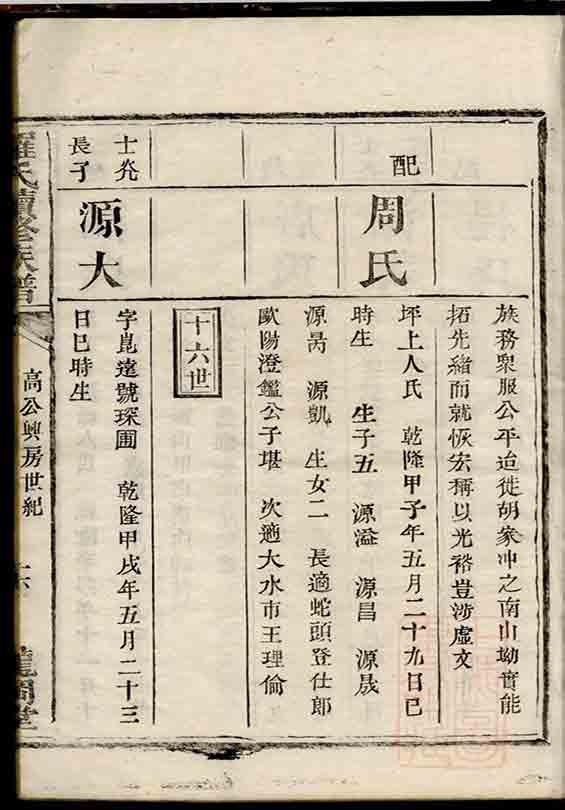 族務衆服公平迨徙胡家冲之南山坳實能
拓先緒而就恢宏稱以光裕豈涉虛文
配
周氏
坪上人氏 乾隆甲子年五月二十九日巳
時生 生子五 源溢 源昌 源晟
源昺 源凱 生女二 長適蛇頭登仕郎
歐陽澄鑑公子堪 次適大水市王理倫
十六世
士光
長子
源大
字崑遠號琛圃 乾隆甲戌年五月二十三
日巳時生
羅氏續修族譜
高公興房世紀